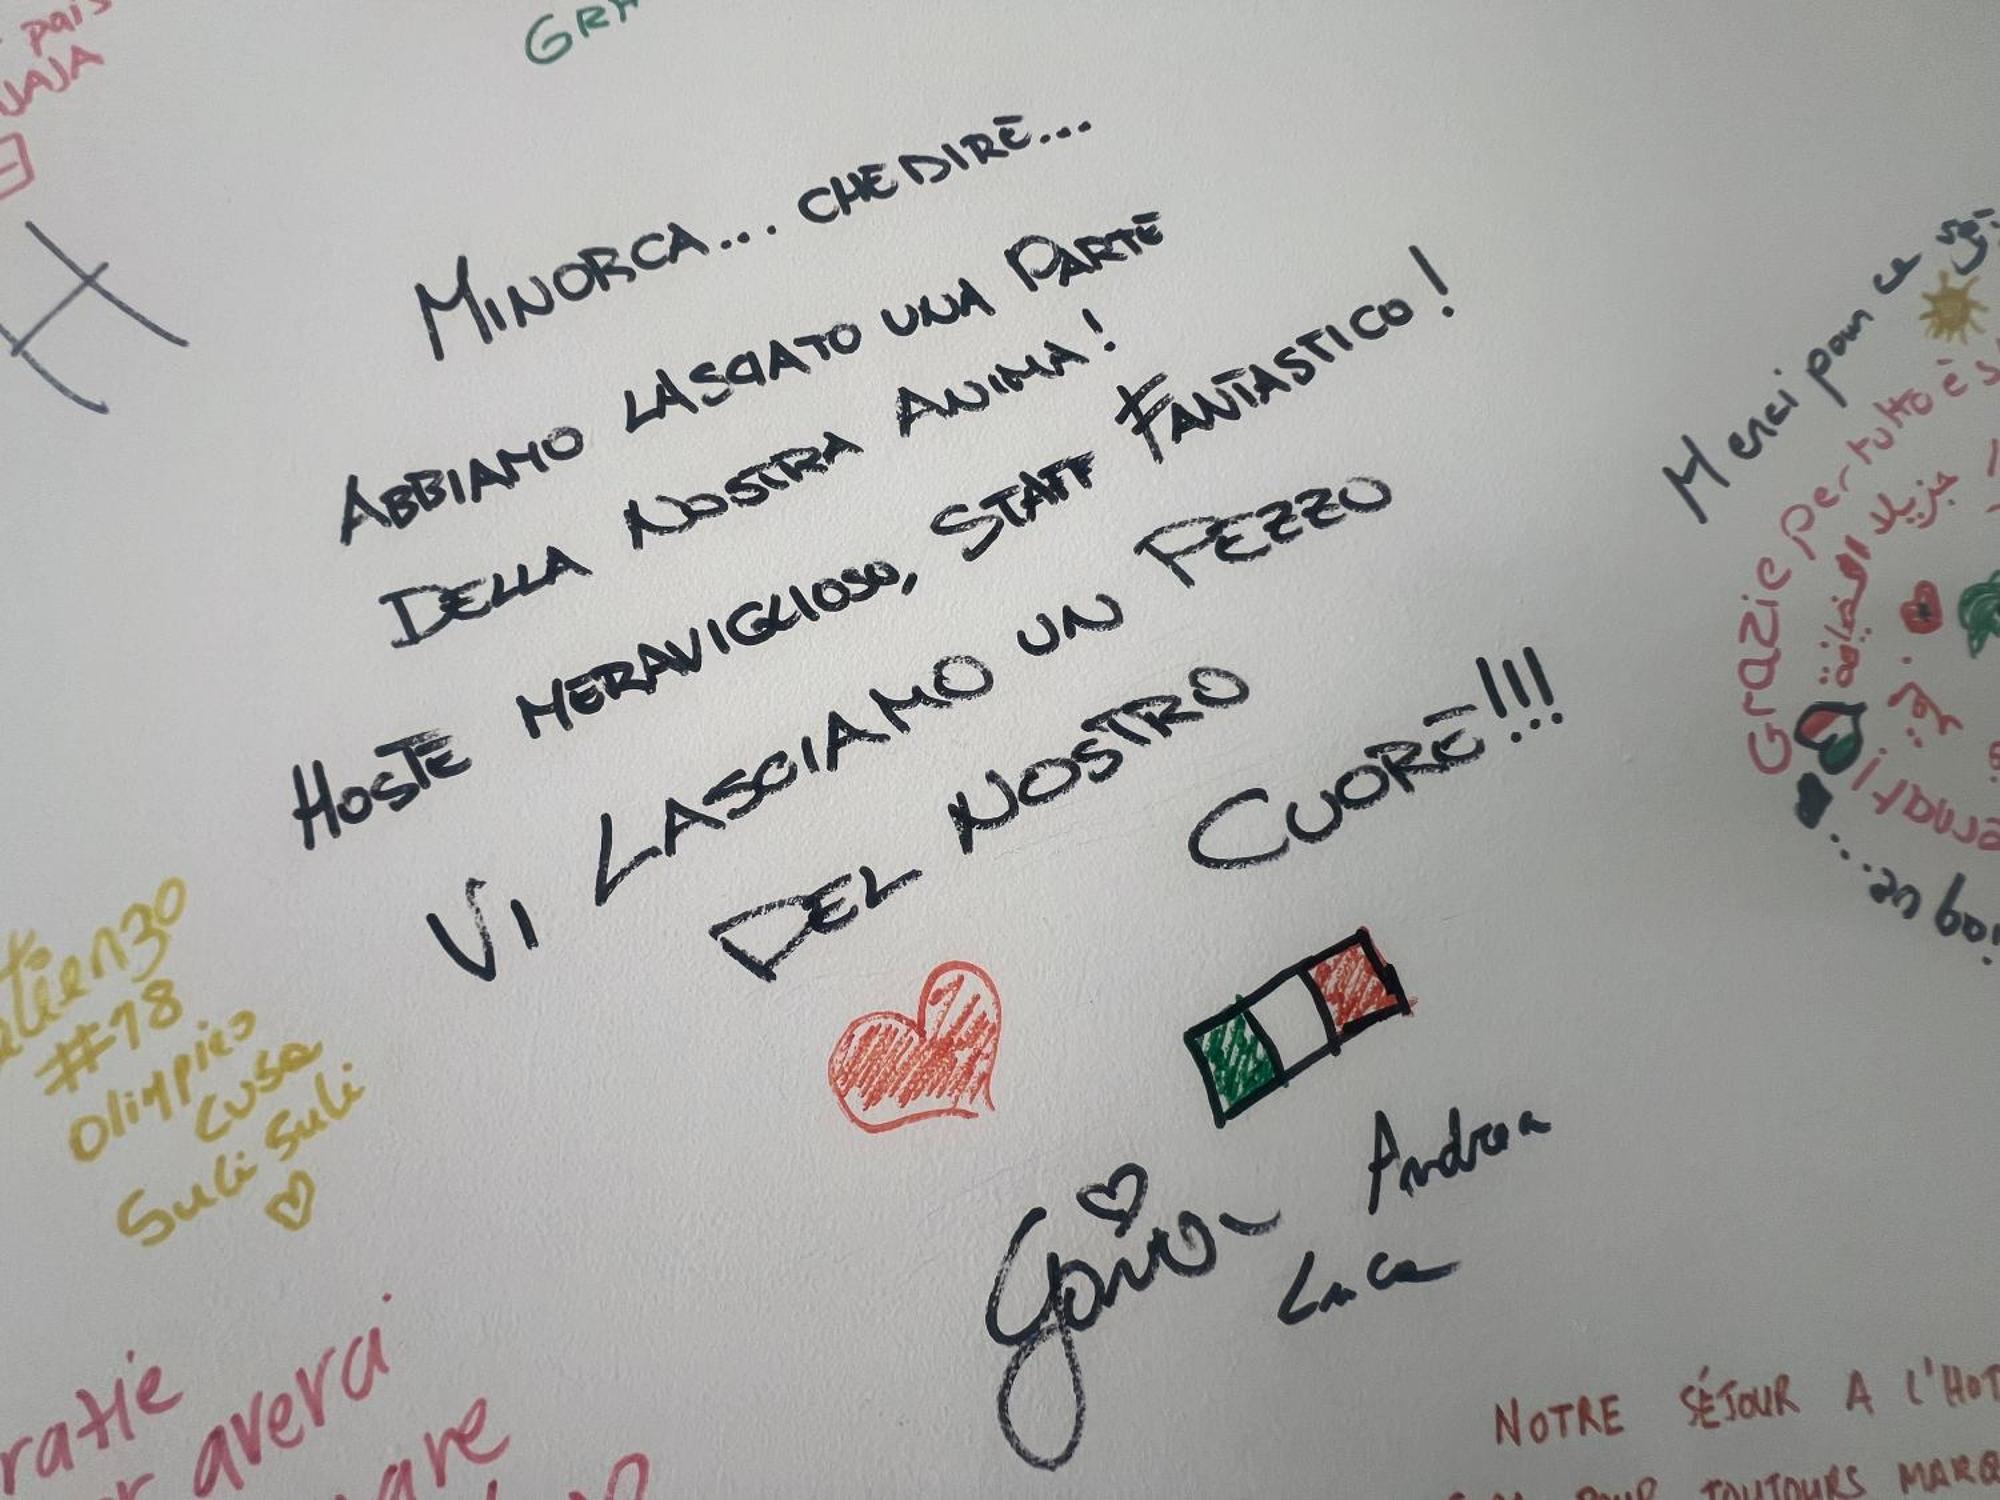 pais
GRA
H
MINORCA... CHE DIRE...
ABBIAMO LASCIATO UNA PARTE
DELLA NOSTRA ANIMA!
HOSTE MERAVIGLIOSO, STAFF FANTASTICO!
VI LASCIAMO UN PEZZO
DEL NOSTRO CUORE!!!
Andrea
Luca
Merci pour ce
Grazie per tutto è s
جزيلا
الضيافة
#78
Olimpico
Cusa
Suli Suli
ratie
averci
are
NOTRE SÉJOUR A L'HOT
POUR TOUJOURS MARQ